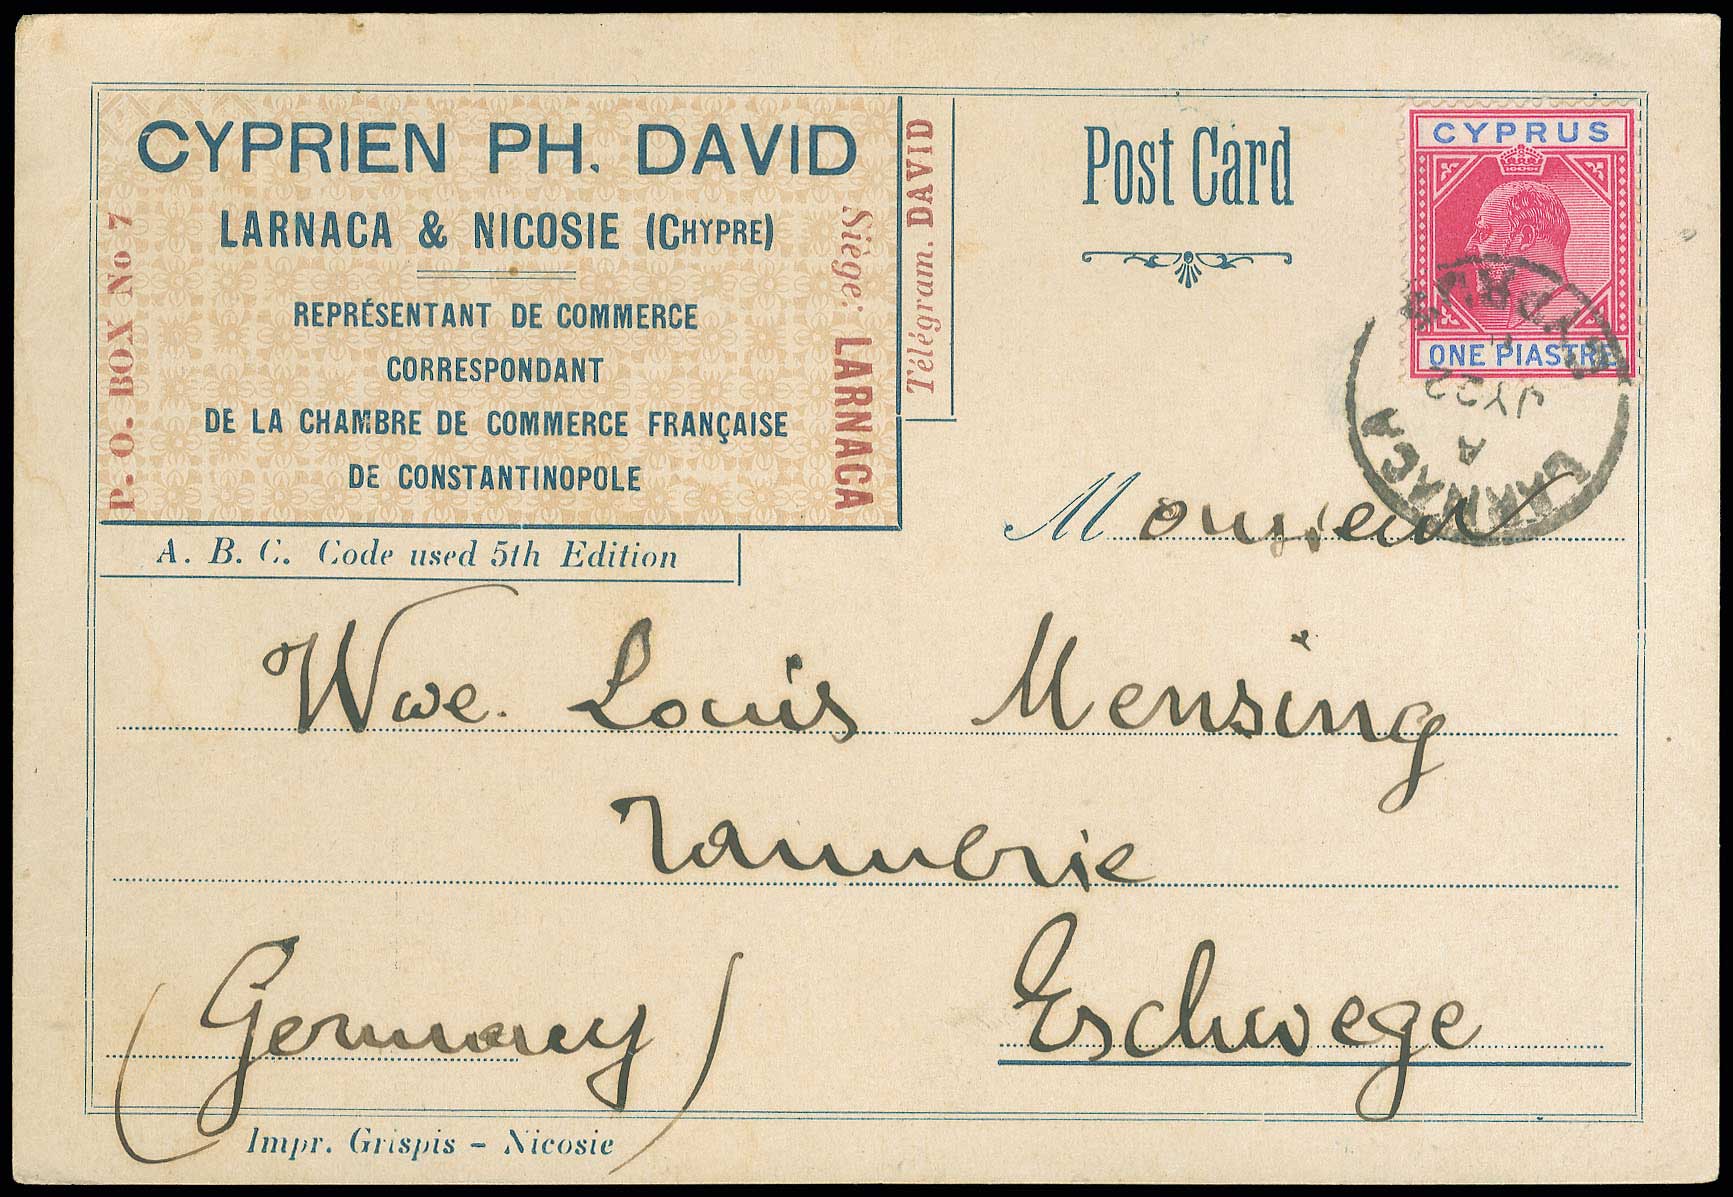 CYPRIEN PH. DAVID
LARNACA & NICOSIE (CHYPRE)
REPRÉSENTANT DE COMMERCE
CORRESPONDANT
DE LA CHAMBRE DE COMMERCE FRANÇAISE
DE CONSTANTINOPLE
P. O. BOX No 7
Siège: LARNACA
Télégram. DAVID
A. B. C. Code used 5th Edition
Post Card
CYPRUS
ONE PIASTRE
CYPRUS
JY 22
A
LARNACA
Monsieur
Wwe. Louis Mensing
Tannerie
Eschwege
(Germany)
Impr. Grispis - Nicosie